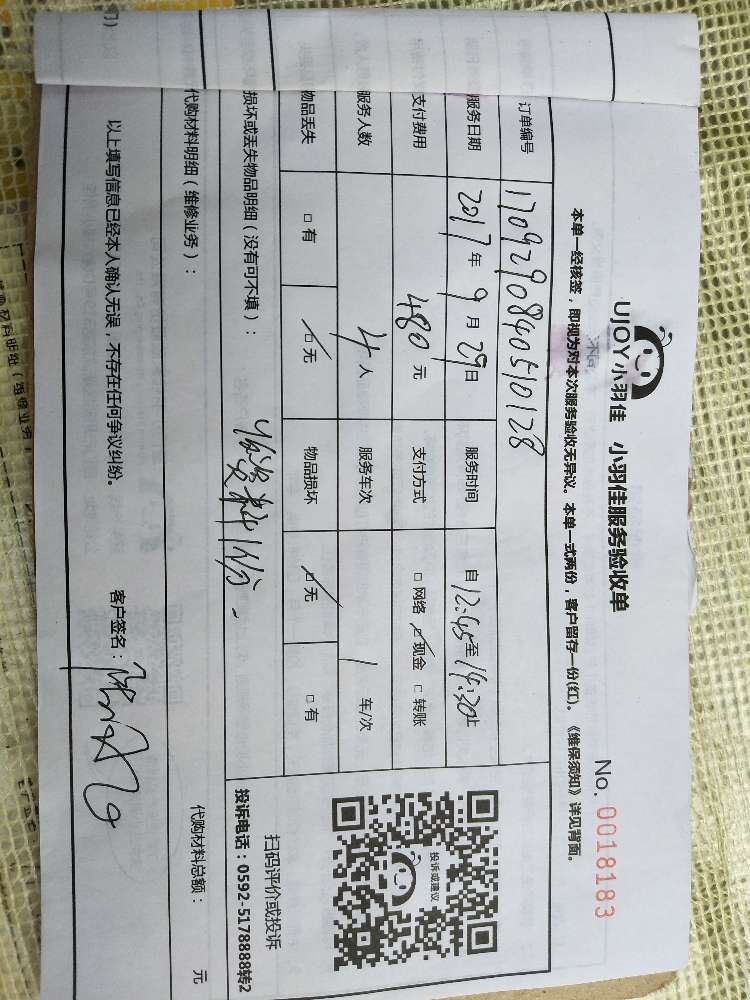 UJOY小羽佳 小羽佳服务验收单
No. 0018183
本单一经核签，即视为对本次服务验收无异议。本单一式两份，客户留存一份(红)。《维保须知》详见背面。
订单编号 1709290840510128
服务日期 2017年9月29日 服务时间 自12:45至14:30止
支付费用 480元 支付方式 □网络 ☑现金 □转账
服务人数 4人 服务车次 1车/次
物品丢失 □有 ☑无 物品损坏 ☑无 □有
投诉或建议
扫码评价或投诉
投诉电话：0592-5178888转2
损坏或丢失物品明细（没有可不填）：
代购材料明细（维修业务）：
代购材料总额： 元
以上填写信息已经本人确认无误，不存在任何争议纠纷。
客户签名：